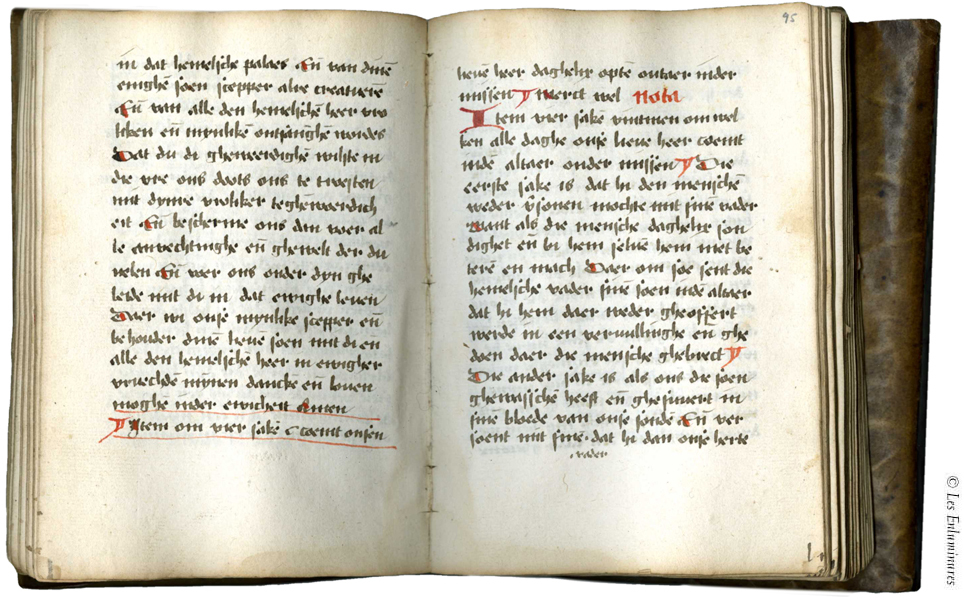 in dat hemelsche palaes Eñ van dinē
enighē soen scepper alre creatuere
Eñ van alle den hemelschē heer vro
liken eñ mynlikē ontfanghē wordes
Dat du di gheweerdighē wilste in
die vre ons doots ons te troesten
mit dynre vroliker teghēwoerdich
eit Eñ bescherme ons dan voer al
le anvechtinghe eñ ghewelt der du
velen Eñ voer ons onder dyn ghe
leide mit di in dat ewighe leuen
Daer wi onse mynlike scepper eñ
behouder dinē lieuē soen mit di eñ
alle den hemelschē heer in ewigher
vruechdē mynen dancke en louen
moghē inder ewicheit Amen
Item om vier sakē coemt onsen
95
lieuē heer daghelix optē outaer inder
missen merct wel Nota
Item vier sake om wel
ken alle daghe onse lieue heer coemt
indē altaer onder missen Die
eerste sake is dat hi den menschē
weder v̄sonen mochte mit sinē vader
want als die mensche daghelix son
dighet en bi hem seluē hem niet be
terē en mach Daer om soe sent die
hemelsche vader sinē soen indē altaer
dat hi hem daer weder gheoffert
werde in een vervullinghe en ghe
doen daer die mensche ghebrect
Die ander sake is als ons die soen
ghewasschē heeft en ghesuuert in
sinē bloede van onse sonde Eñ ver
soent mit sinē dat hi dan onse herte
vader
© Les Enluminures